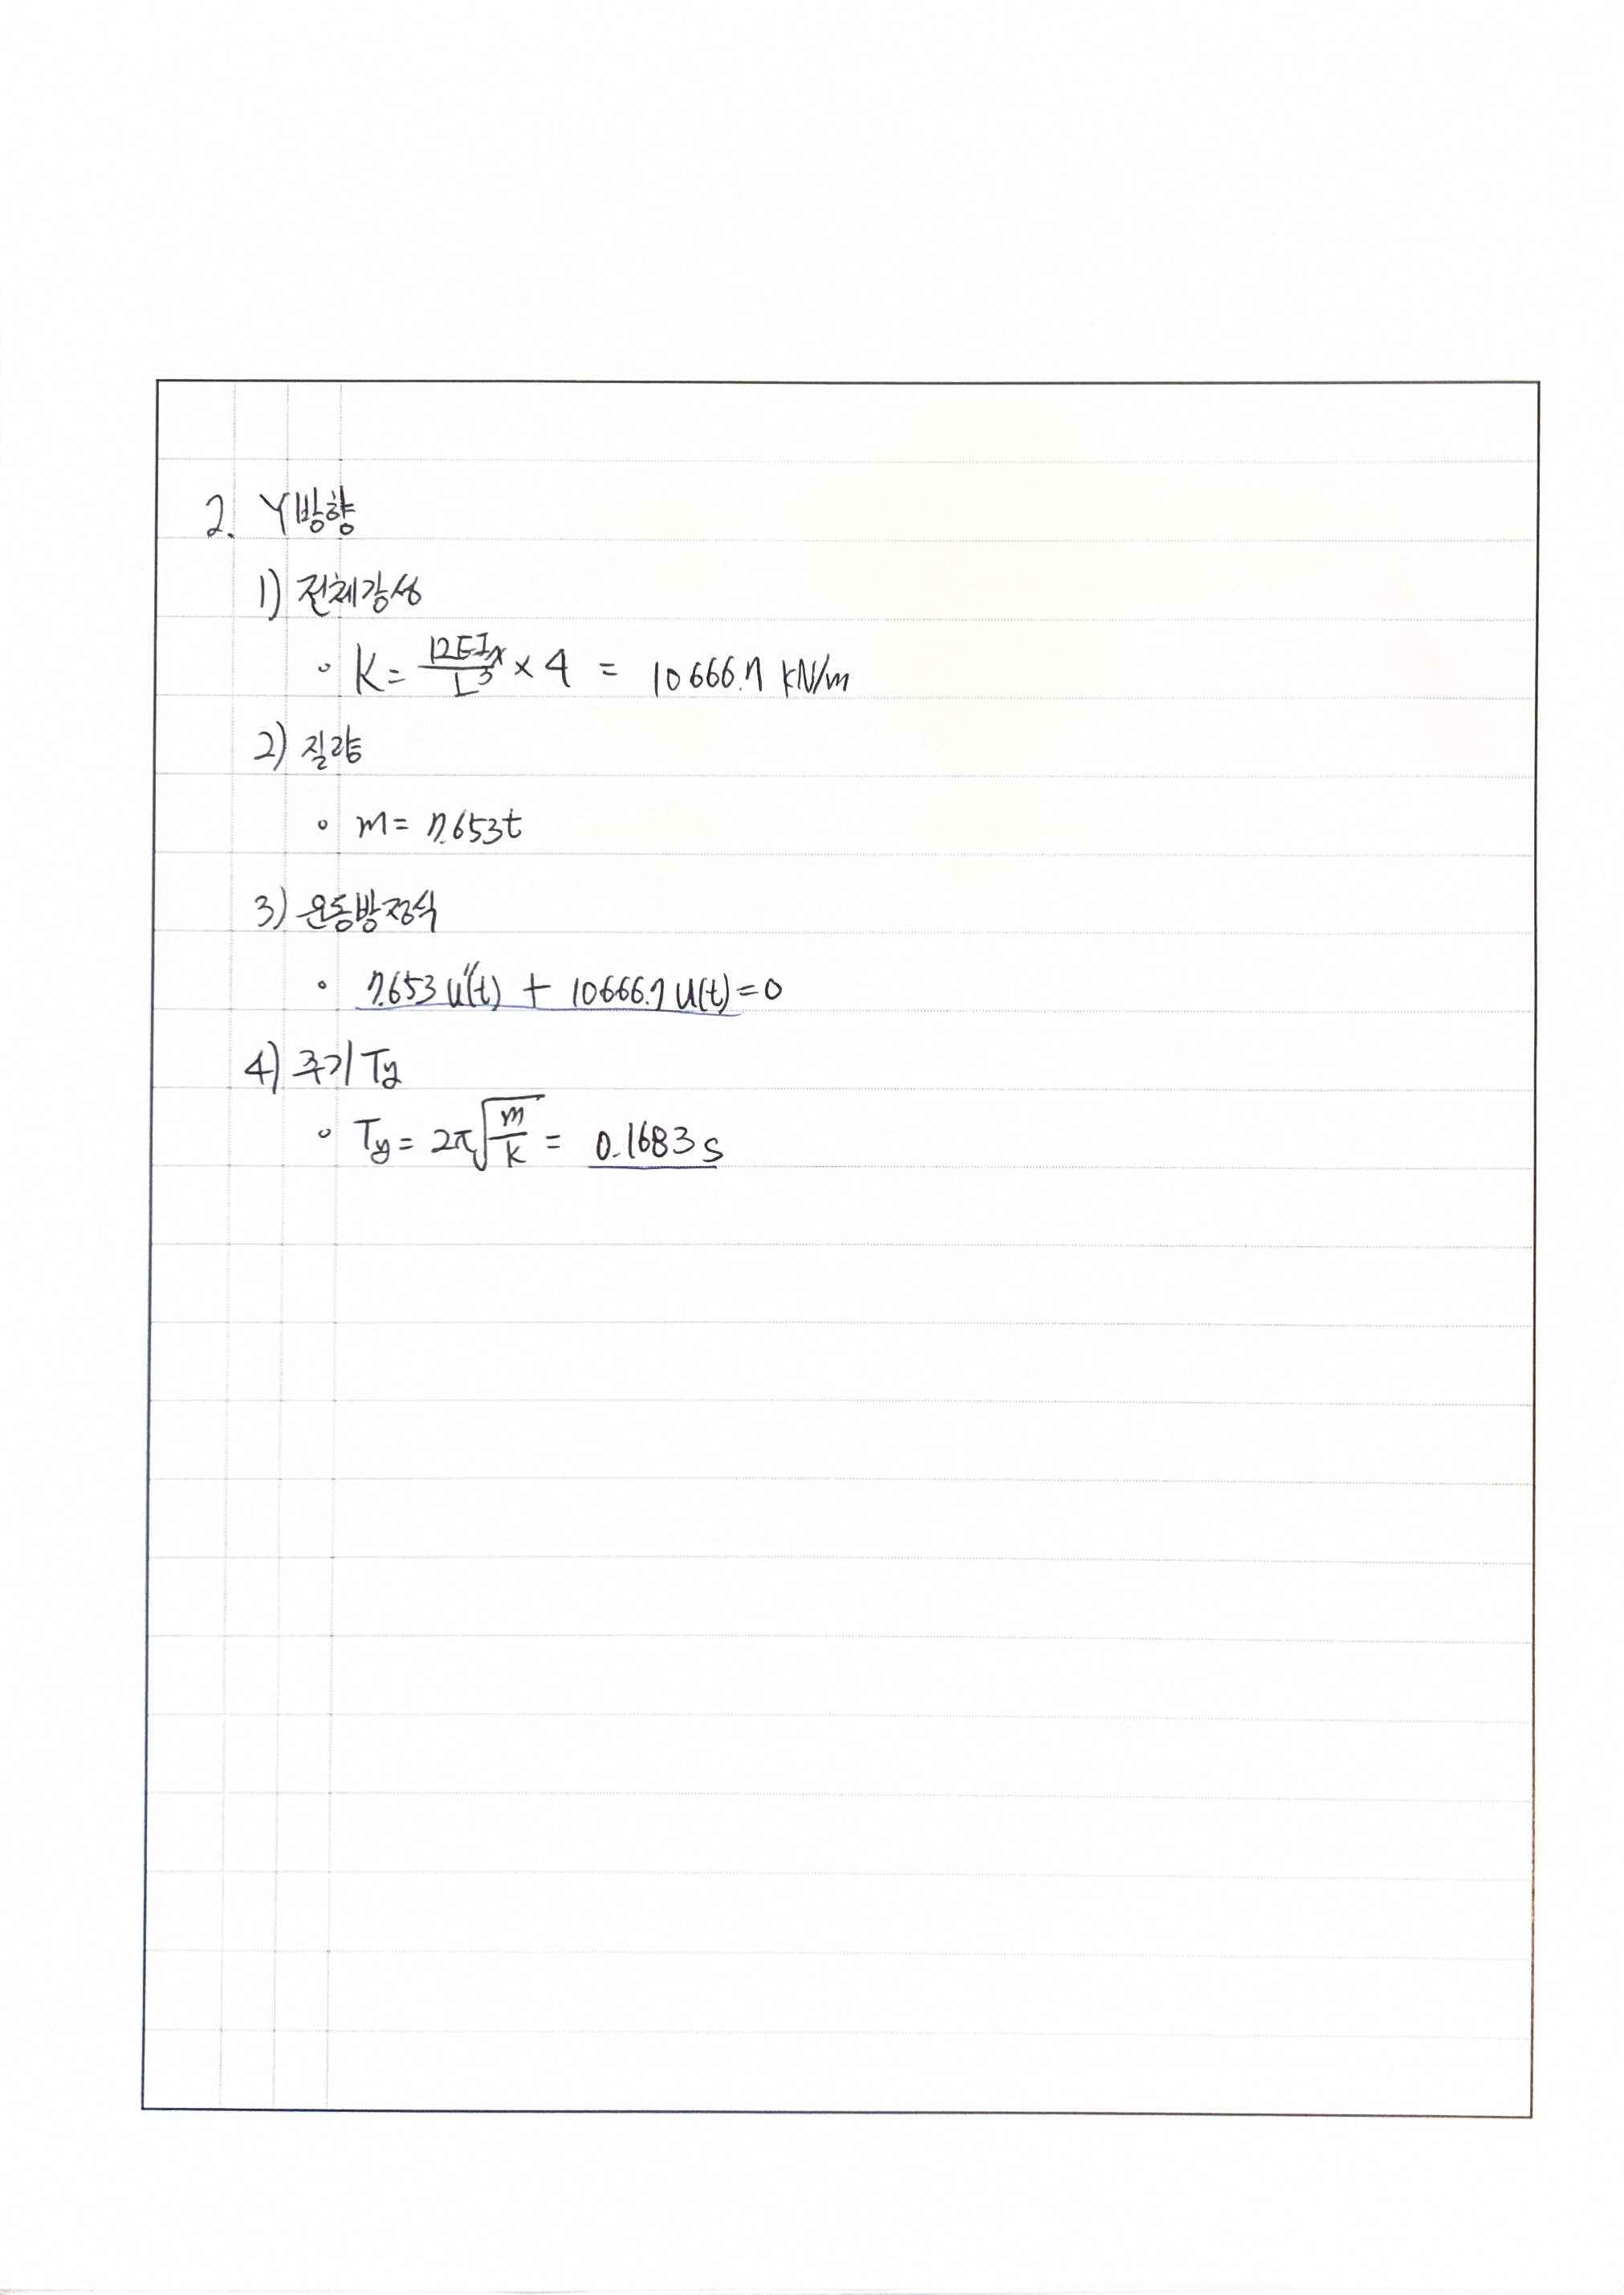 2. Y방향
1) 전체강성
∘ K = 12EIx/L³ × 4 = 10666.7 kN/m
2) 질량
∘ m = 7.653t
3) 운동방정식
∘ 7.653 u''(t) + 10666.7 u(t) = 0
4) 주기 Ty
∘ Ty = 2π√(m/k) = 0.1683 s